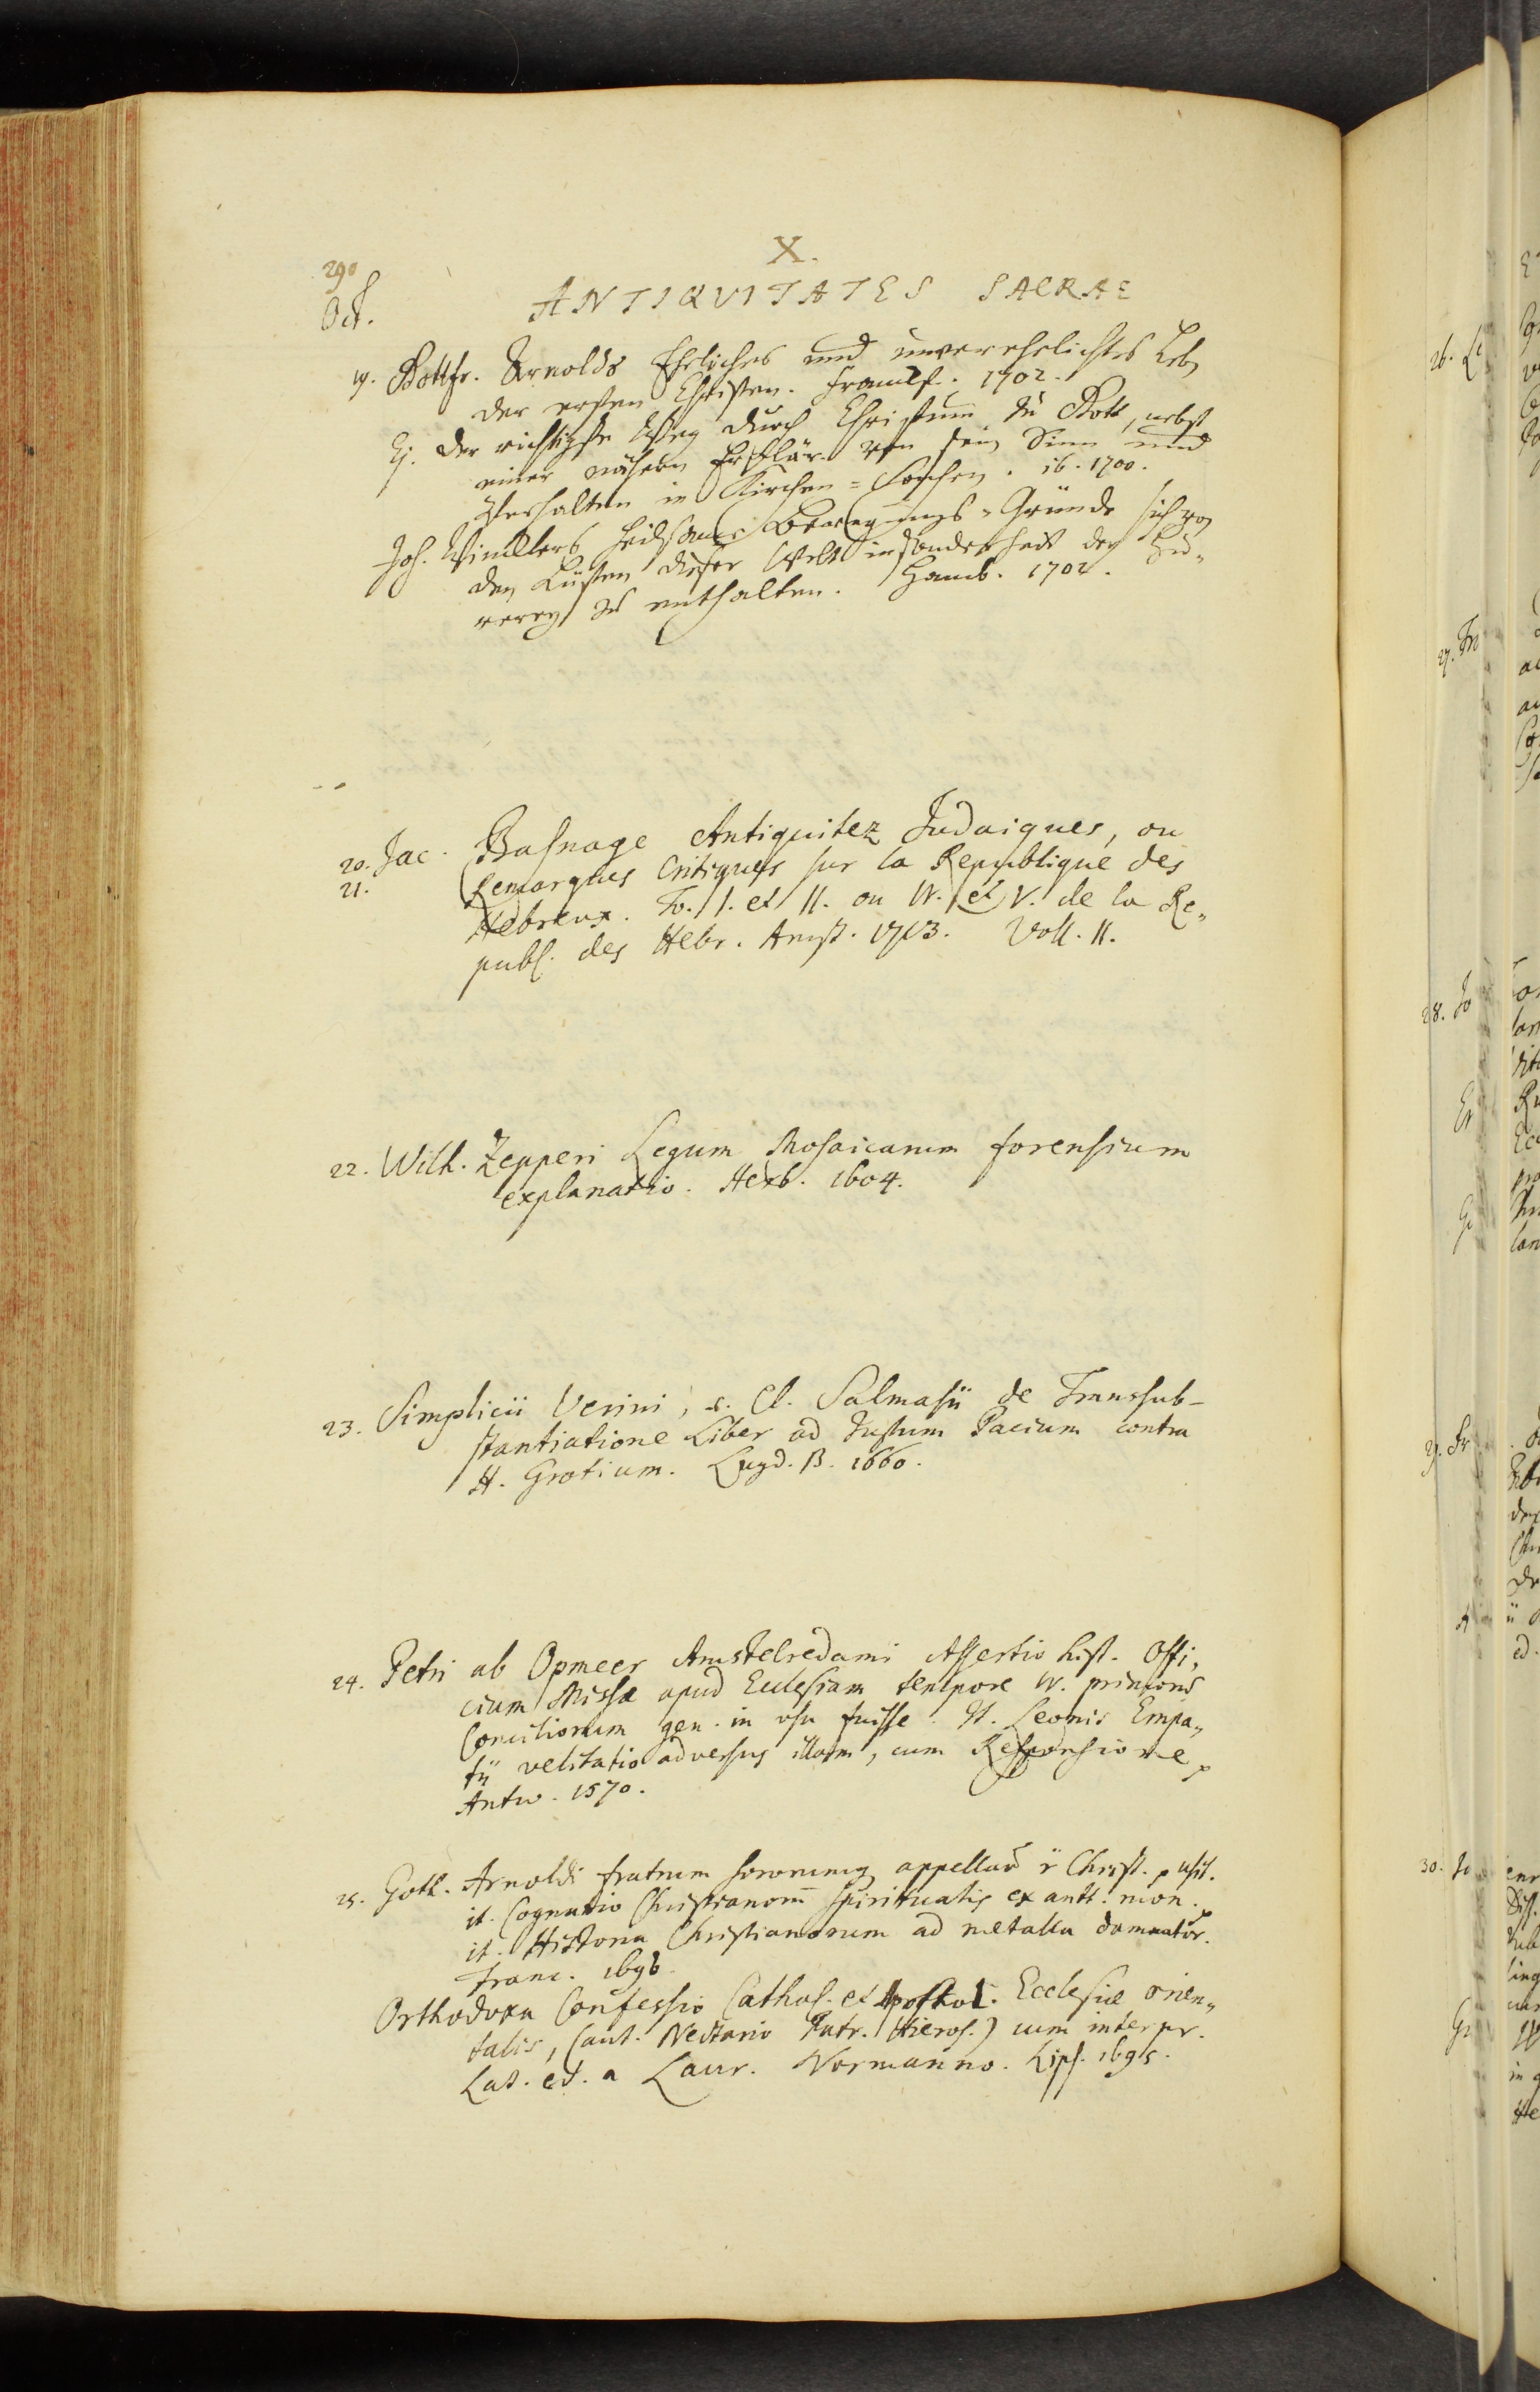 290
X.
Oct.
ANTIQUITATES SACRAE
19. Gottfr. Arnolds Eheliches und unverehelichtes Leb
der ersten Christen. Franckf. 1702.
Ej. der richtigste Weg durch Christum zu Gott, nebst
einer nähern Erklär. von sein Sinn und
Verhalten in Kirchen-Sachen. ib. 1700.
Joh. Wincklers heilsame Bewegungs-Gründe sich von
den Lüsten dieser Welt insonderheit der Hu-
rerey zu enthalten. Hamb. 1702.
20. Jac. Basnage Antiquitez Judaiques, ou
21. Remarques Critiques sur la Republique des
Hebreux. To. I. et II. ou IV. et V. de la Re-
publ. des Hebr. Amst. 1713. Voll. II.
22. Wilh. Zepperi Legum Mosaicarum forensium
explanatio. Herb. 1604.
23. Simplicii Verini, s. Cl. Salmasii de Transsub-
stantiatione Liber ad Justum Pacium contra
H. Grotium. Lugd. B. 1660.
24. Petri ab Opmeer Amstelredami Assertio hist. Offi-
cium Missæ apud Ecclesiam tempore IV. primorum
Conciliorum gen. in usu fuisse. It. Leonis Empa-
tii velitatio adversus illam, cum Responsione
Antw. 1570.
25. Goth. Arnoldi fratrum sororumq appellat Christ. usit.
it. Cognatio Christianorum spiritualis ex antt. mon.
it. Historia Christianorum ad metalla damnator.
Franc. 1696.
Orthodoxa Confessio Cathol. et Apostol. Ecclesiæ orien-
talis, (aut. Nectario Patr. Hieros.) cum interpr.
Lat. ed. a Laur. Normanno. Lips. 1695.